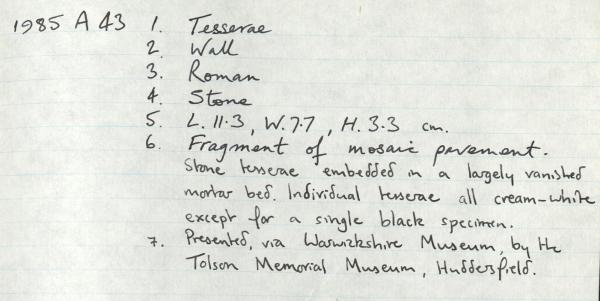 1985 A 43 1. Tesserae
2. Wall
3. Roman
4. Stone
5. L. 11·3, W. 7·7, H. 3·3 cm.
6. Fragment of mosaic pavement.
Stone tesserae embedded in a largely vanished
mortar bed. Individual tesserae all cream-white
except for a single black specimen.
7. Presented, via Warwickshire Museum, by the
Tolson Memorial Museum, Huddersfield.